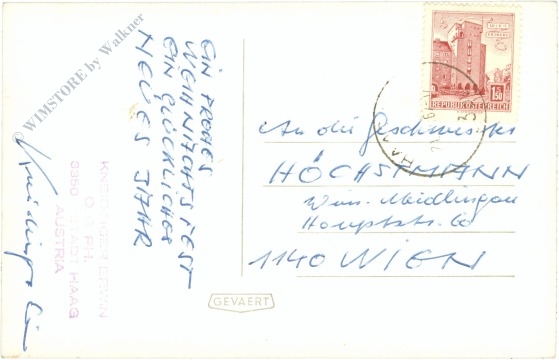 WIMSTORE by Walkner
EIN FROHES
WEIHNACHTSFEST
EIN GLÜCKLICHES
NEUES JAHR
ERWIN
O. T. PH.
3350 STADT HAAG
AUSTRIA
1.50
REPUBLIK ÖSTERREICH
HAAG
An die Geschwister
HÖCHSTMANN
Wien-Meidlingau
Hauptstr. 6
1140 WIEN
GEVAERT